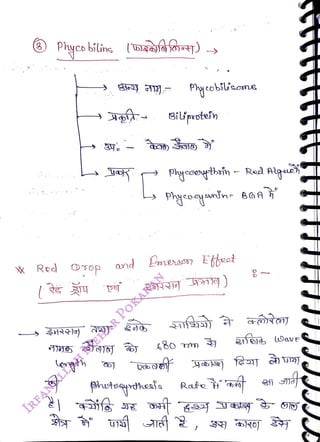 ③ Phycobilins (फाइकोबिलिन्स) →
→ अन्य नाम - Phycobilisome
→ प्रकृति - Biliprotein
→ उप. - केवल शैवाल में
→ प्रकार → Phycoerythrin - Red Algae में
→ Phycocyanin - BGA में
※ Red Drop and Emerson Effect
(रेड ड्रॉप एवं इमरसन प्रभाव) :-
→ इमरसन तथा इनके साथियों ने क्लोरेला
नामक शैवाल को 680 nm से अधिक wave
length का एकवर्णी प्रकाश दिया तो पाया
की Photosynthesis Rate में कमी आ जाती
है। क्योंकि यह कमी दृश्य प्रकाश के लाल
क्षेत्र में पायी जाती है, इस कारण इसे